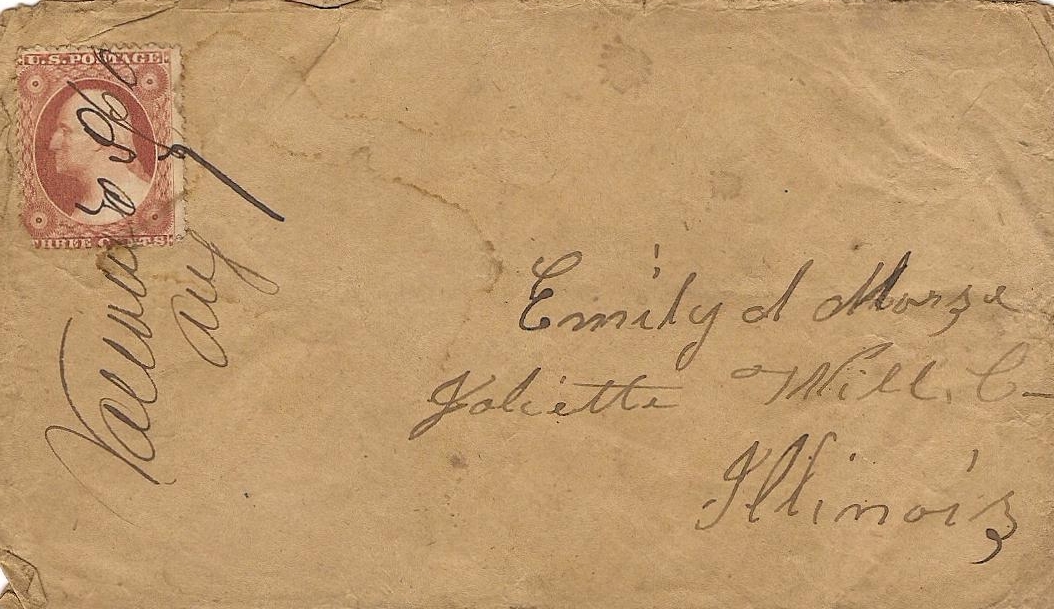 U.S. POSTAGE
THREE CENTS
Aug 9
Emily d Morse
Joliette Will, C-
Illinois